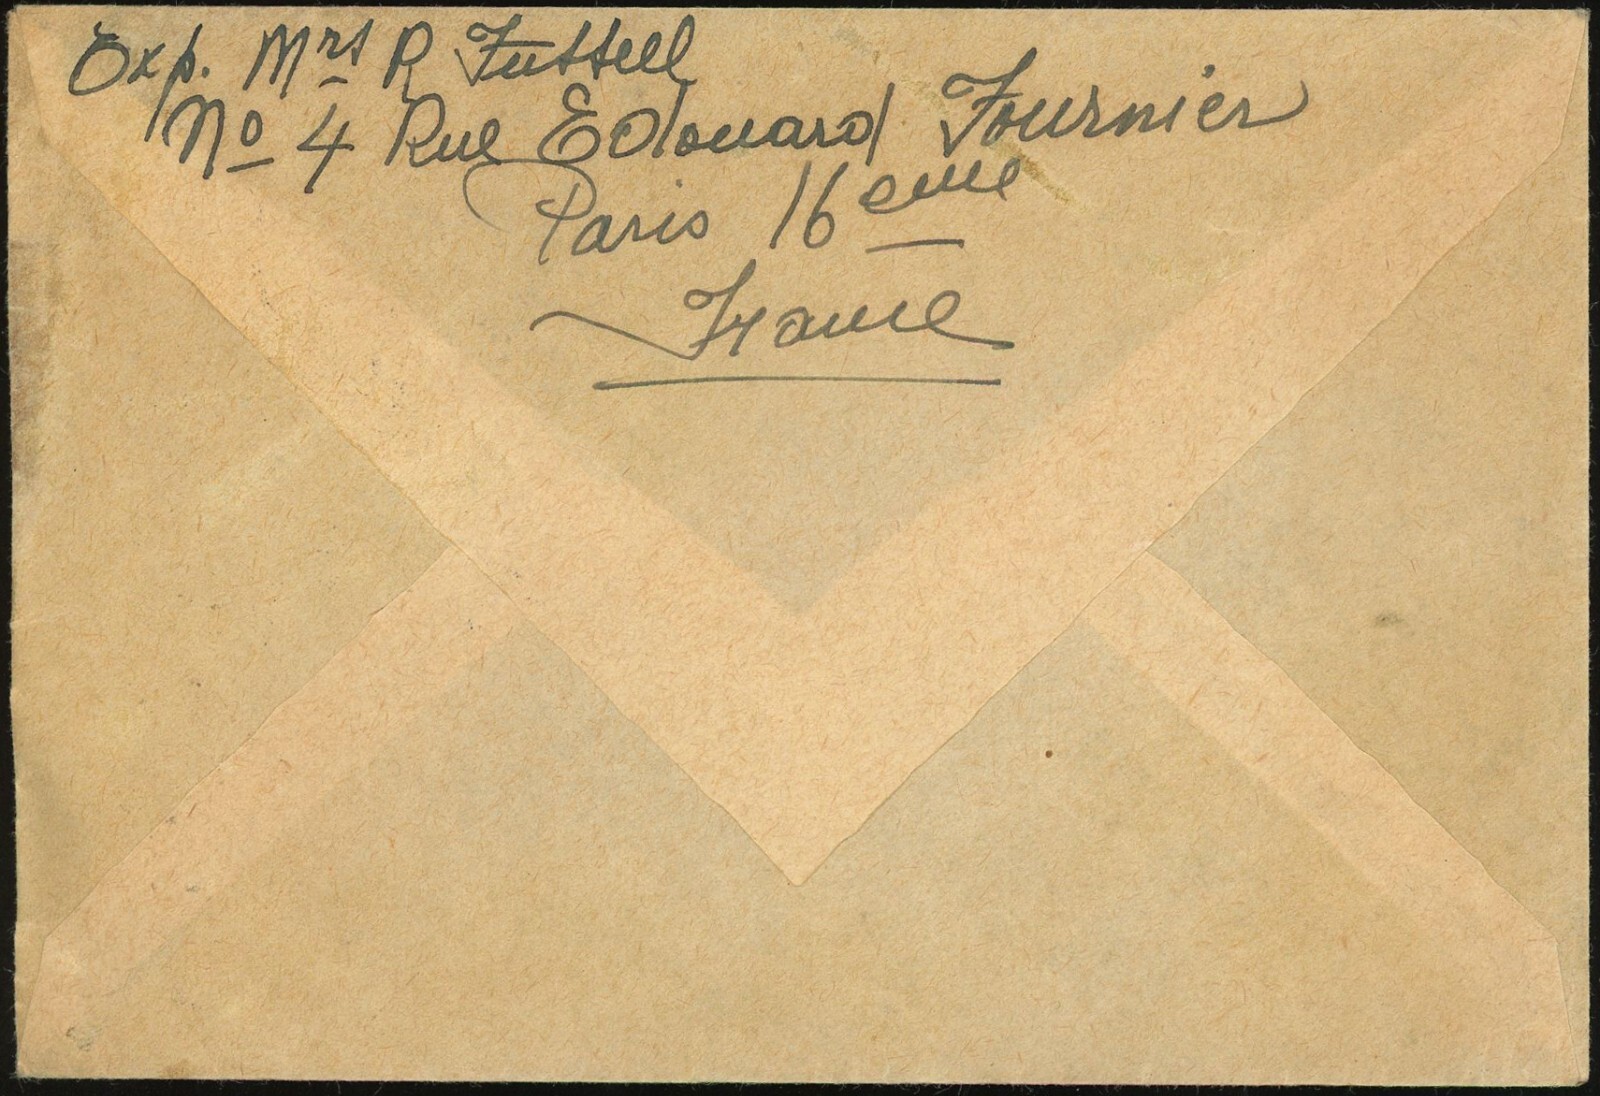 Exp. Mrs R Futtell
No 4 Rue Edouard Fournier
Paris 16eme
France